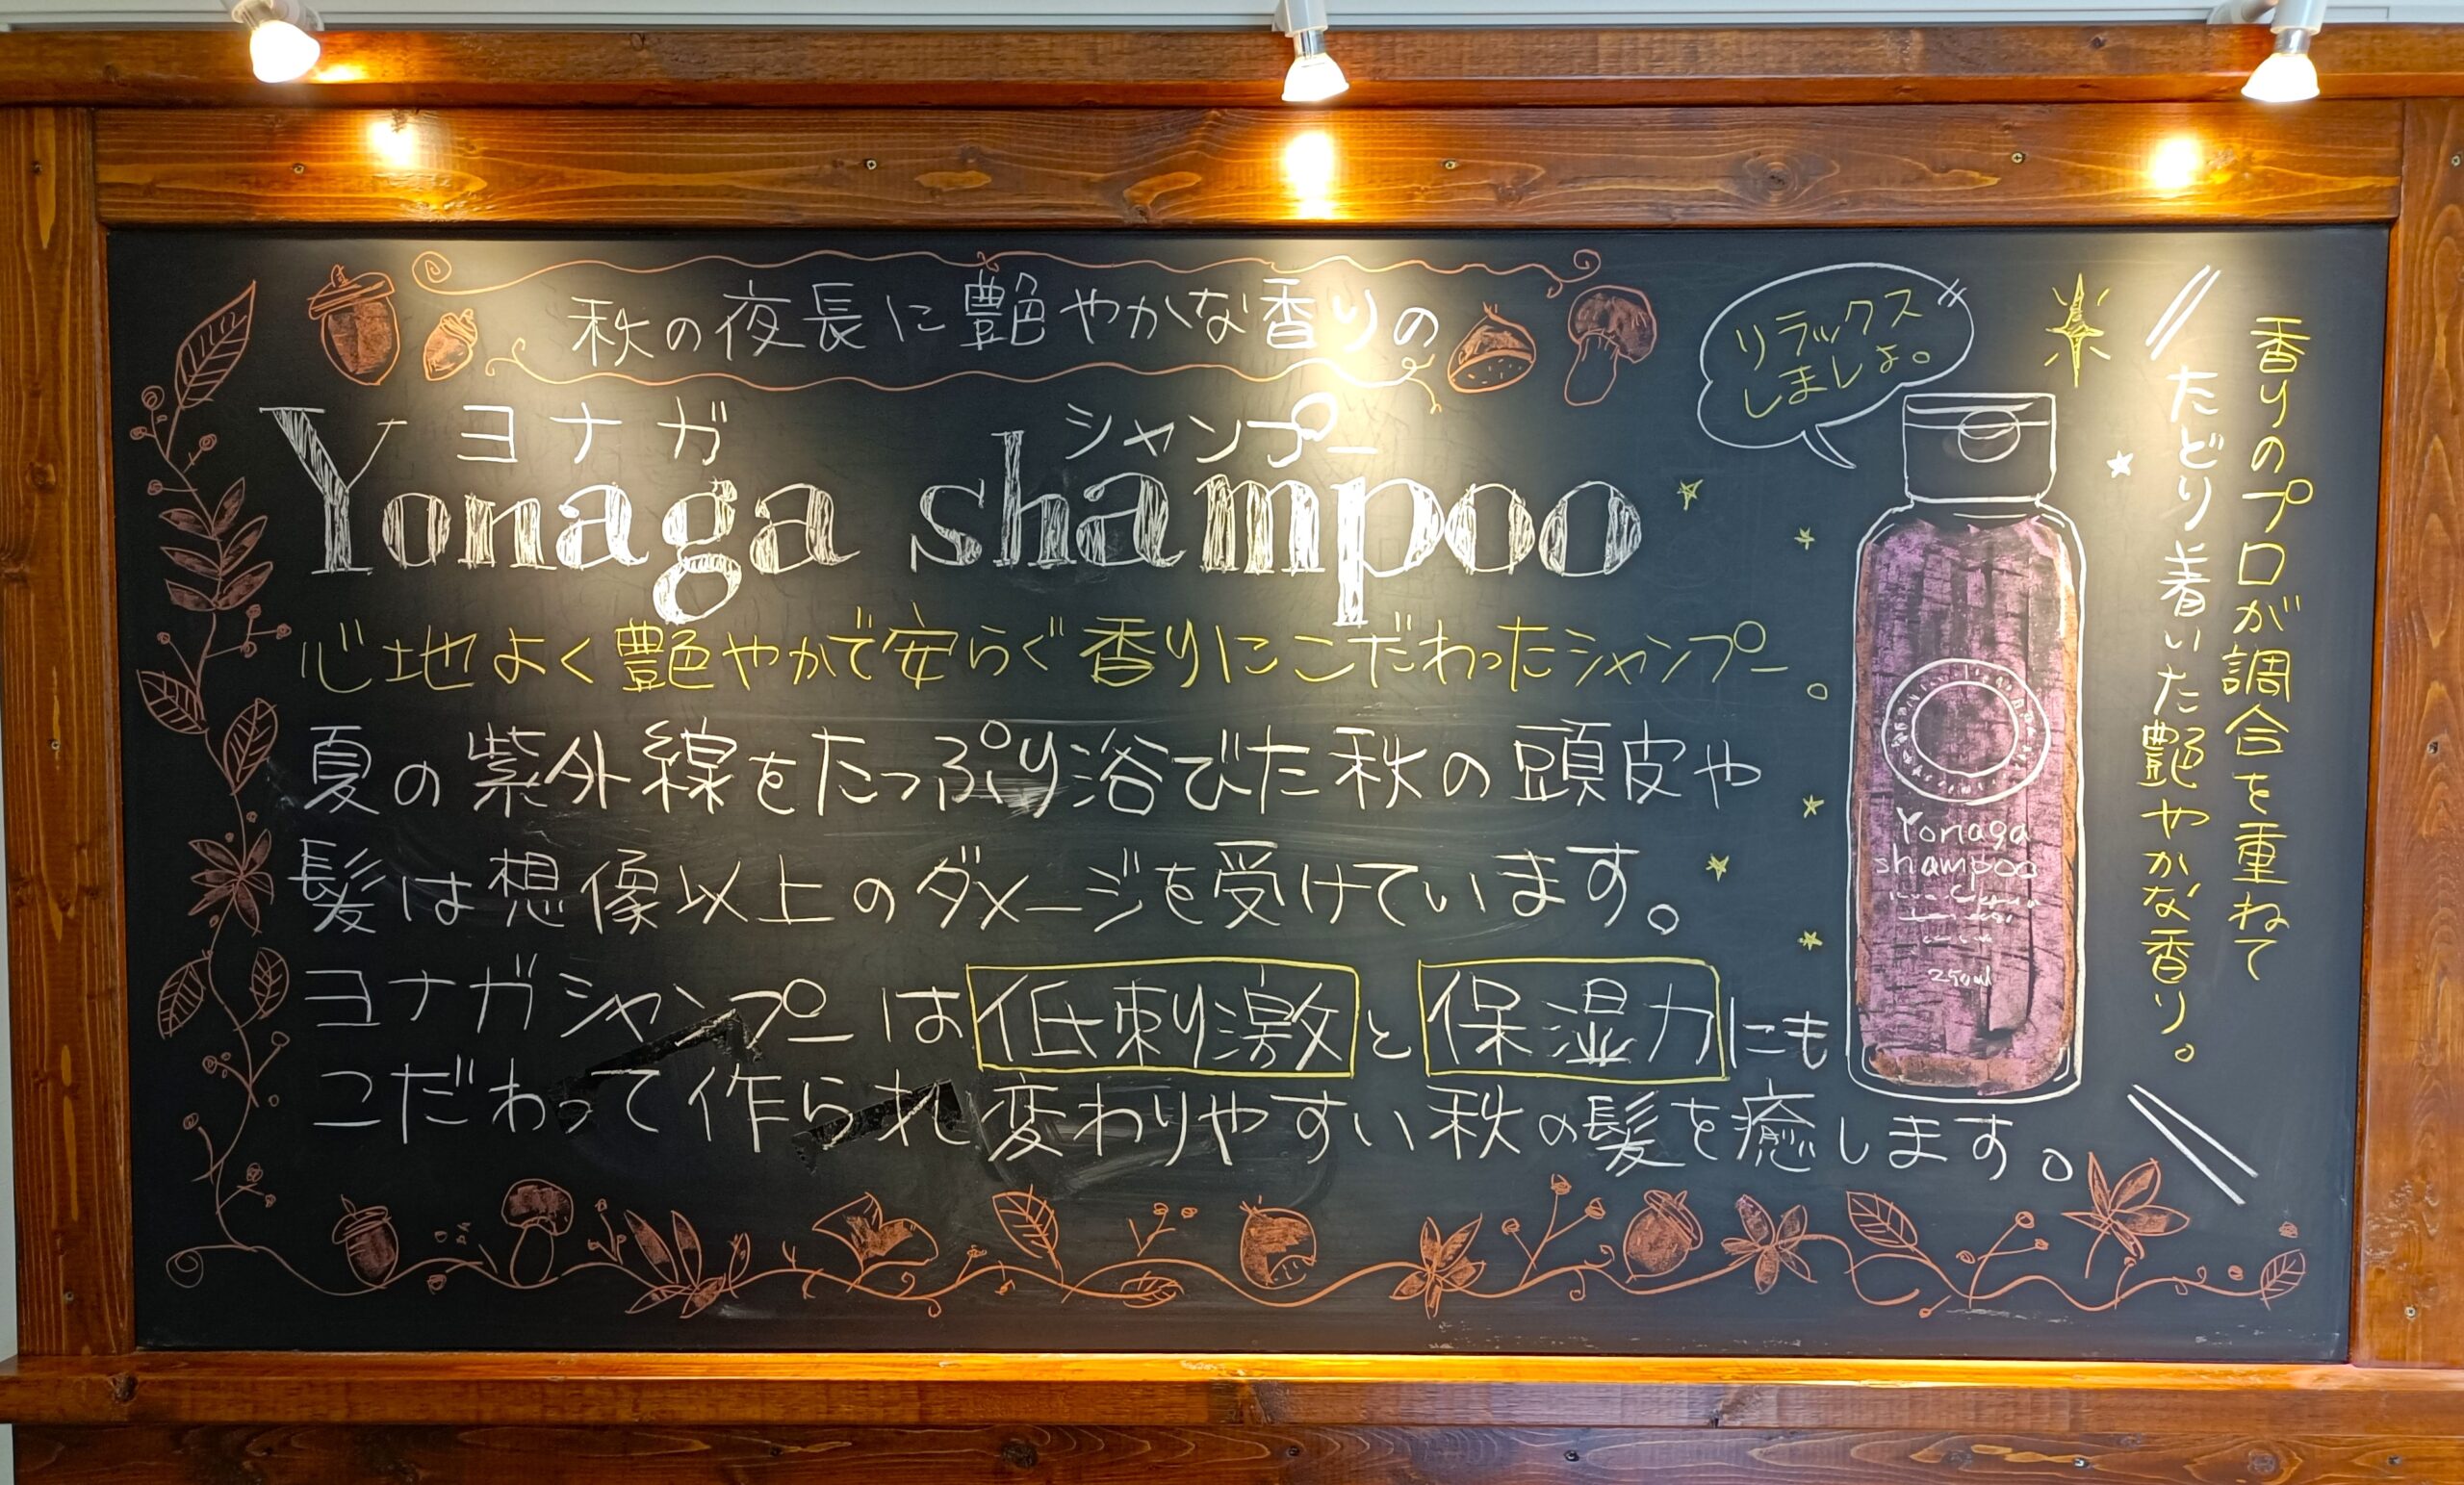 秋の夜長に艶やかな香りの
ヨナガ シャンプー
Yonaga shampoo
心地よく艶やかで安らぐ香りにこだわったシャンプー。
夏の紫外線をたっぷり浴びた秋の頭皮や
髪は想像以上のダメージを受けています。
ヨナガシャンプーは低刺激と保湿力にも
こだわって作られ変わりやすい秋の髪を癒します。
リラックス
しましょ。
Yonaga
shampoo
250ml
香りのプロが調合を重ねて
たどり着いた艶やかな香り。